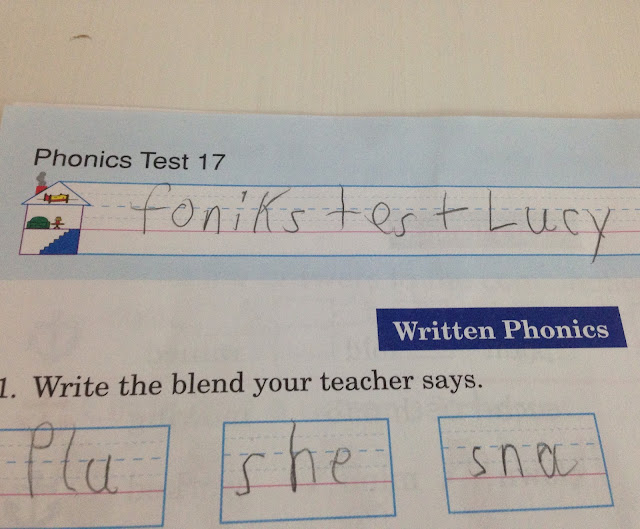 Phonics Test 17
foniks test Lucy
Written Phonics
1. Write the blend your teacher says.
Pla she sna